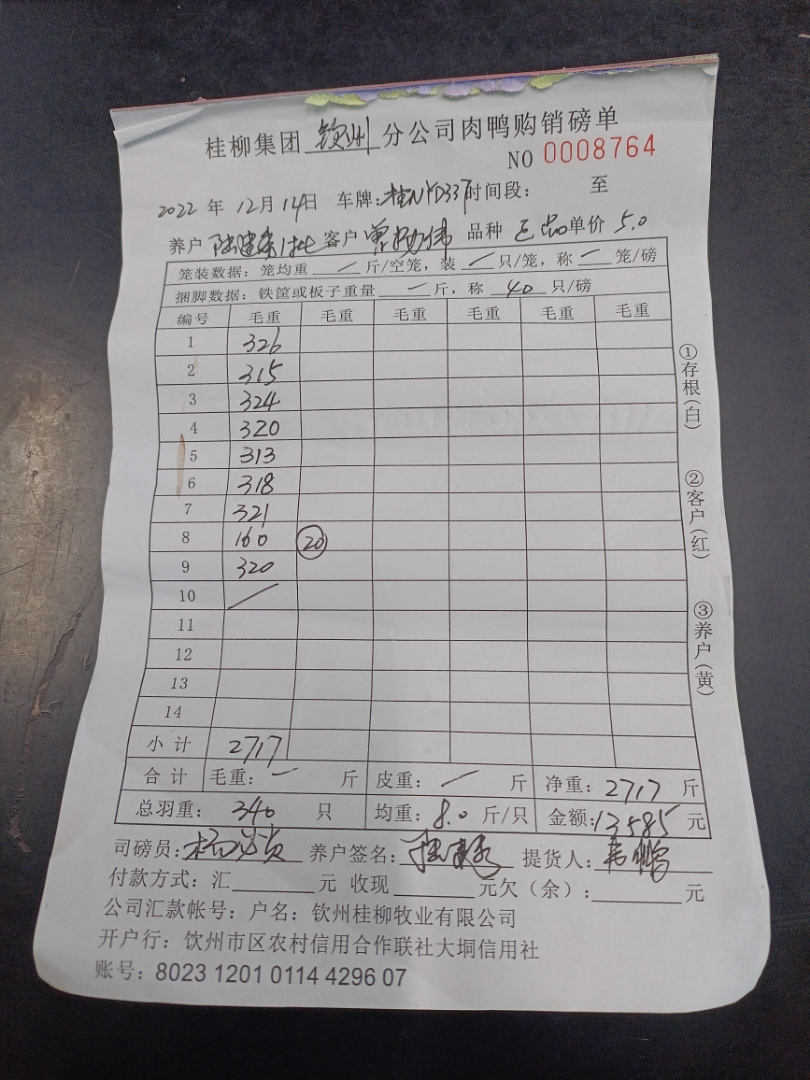 桂柳集团 钦州 分公司肉鸭购销磅单
NO 0008764
2022 年 12月 14日 车牌: 桂NYD337 时间段: 至
养户 客户 曾 伟 品种 单价 5.0
笼装数据: 笼均重 / 斤/空笼, 装 / 只/笼, 称 / 笼/磅
捆脚数据: 铁筐或板子重量 / 斤, 称 40 只/磅
编号 毛重 毛重 毛重 毛重 毛重 毛重
1 326
2 315
3 324
4 320
5 313
6 318
7 321
8 160 20
9 320
10 /
11
12
13
14
小计 2717
合计 毛重: / 斤 皮重: / 斤 净重: 2717 斤
总羽重: 340 只 均重: 8.0 斤/只 金额: 13585 元
司磅员: 养户签名: 提货人:
付款方式: 汇 元 收现 元欠（余）: 元
公司汇款帐号: 户名: 钦州桂柳牧业有限公司
开户行: 钦州市区农村信用合作联社大垌信用社
账号: 8023 1201 0114 4296 07
①存根（白）
②客户（红）
③养户（黄）